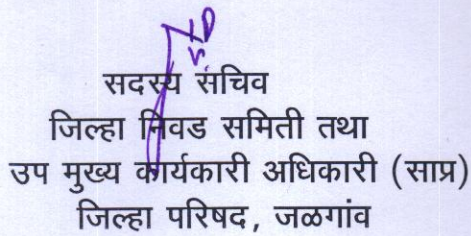 सदस्य सचिव
जिल्हा निवड समिती तथा
उप मुख्य कार्यकारी अधिकारी (साप्र)
जिल्हा परिषद, जळगांव